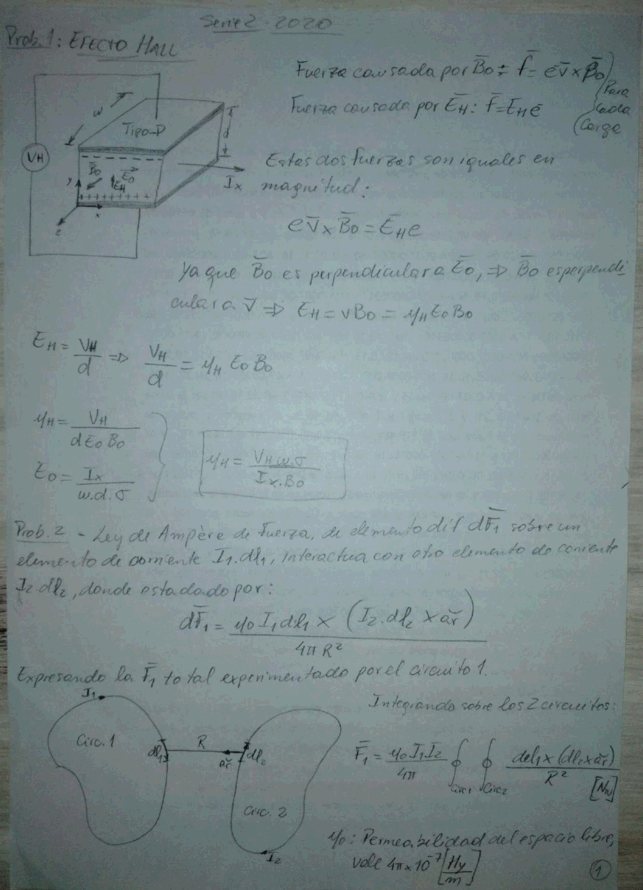 Serie 2 - 2020
Prob. 1: EFECTO HALL
Fuerza causada por B̄o : f̄ = e v̄ x B̄o
Fuerza causada por ĒH : f̄ = ĒH e
Para cada carga
TIPO-P
w
d
VH
B̄o
Ēo
ĒH
Ix
y
x
z
Estas dos fuerzas son iguales en
magnitud:
e v̄ x B̄o = ĒH e
Ya que B̄o es perpendicular a Ēo, => B̄o es perpendi-
cular a v̄ => EH = v Bo = μH Eo Bo
EH = VH / d => VH / d = μH Eo Bo
μH = VH / (d Eo Bo)
Eo = Ix / (w.d.σ)
μH = VH.w.σ / (Ix.Bo)
Prob. 2 - Ley de Ampère de Fuerza, de elemento dif dF̄1 sobre un
elemento de corriente I1.dl1, interactua con otro elemento de corriente
I2 dl2, donde esta dado por:
dF̄1 = μo I1 dl1 x (I2.dl2 x ar) / 4π R²
Expresando la F̄1 total experimentado por el circuito 1.
Integrando sobre los 2 circuitos:
I1
Circ. 1
dl1
R
ar
dl2
Circ. 2
I2
F̄1 = μo I1 I2 / 4π ∮circ1 ∮circ2 dl1 x (dl2 x ar) / R²
μo: Permeabilidad del espacio libre,
vale 4π x 10⁻⁷ [Hy/m]
1